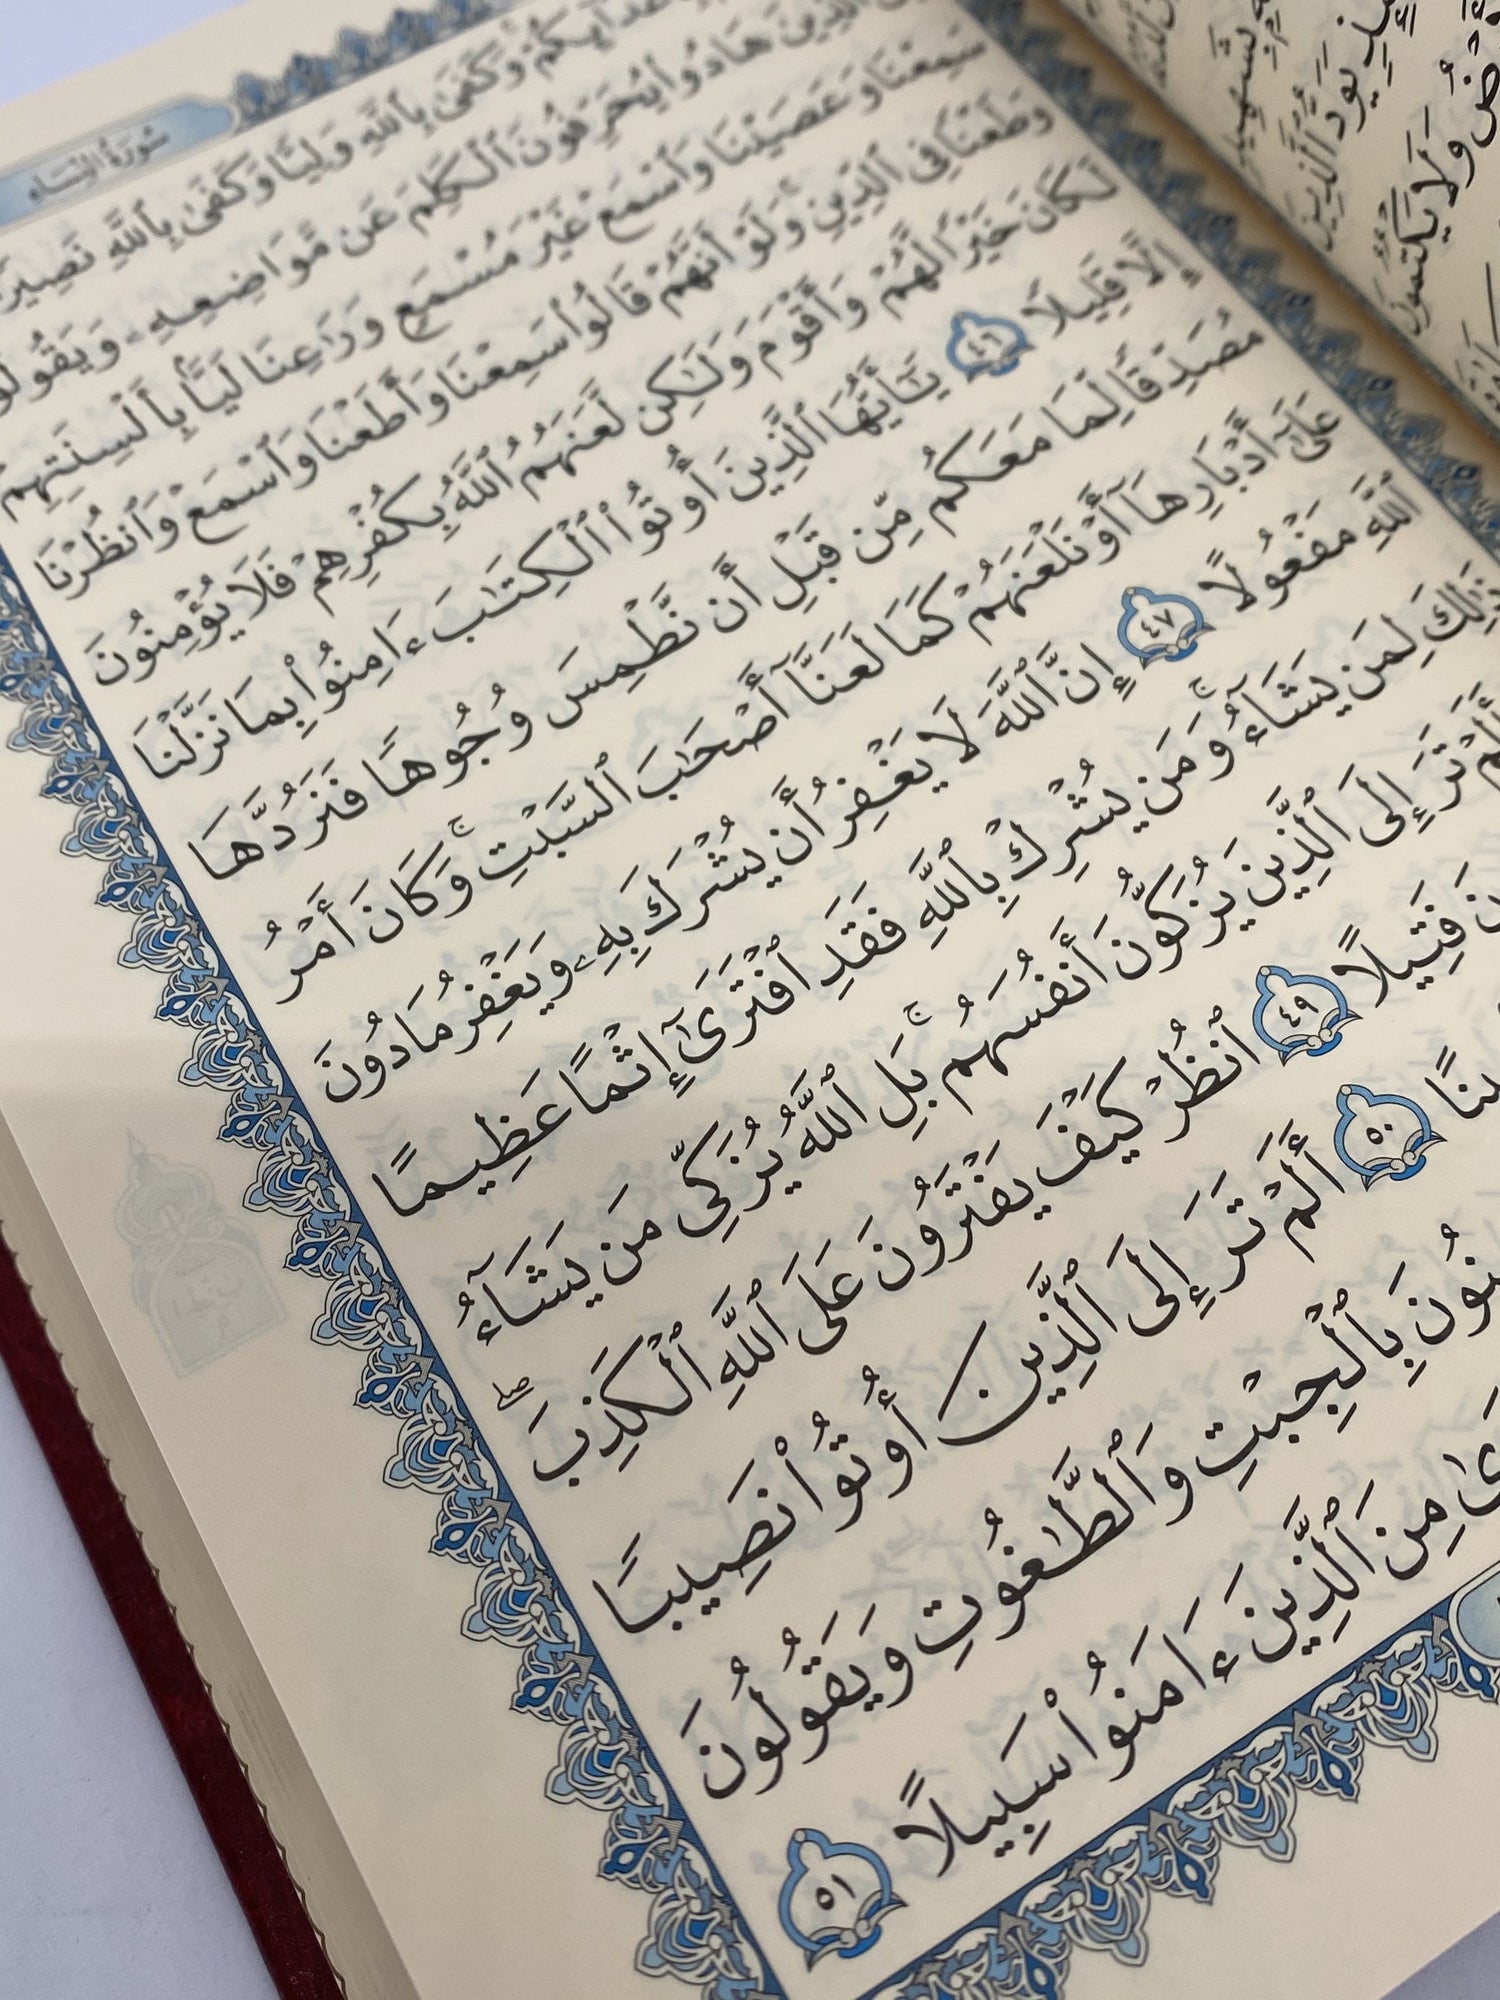 سُورَةُ النِّسَاء
وَكَفَىٰ بِٱللَّهِ وَلِيًّا وَكَفَىٰ بِٱللَّهِ نَصِيرًا
هَادُوا۟ يُحَرِّفُونَ ٱلْكَلِمَ عَن مَّوَاضِعِهِۦ وَيَقُولُونَ
سَمِعْنَا وَعَصَيْنَا وَٱسْمَعْ غَيْرَ مُسْمَعٍ وَرَٰعِنَا لَيًّۢا بِأَلْسِنَتِهِمْ
وَطَعْنًا فِى ٱلدِّينِ ۚ وَلَوْ أَنَّهُمْ قَالُوا۟ سَمِعْنَا وَأَطَعْنَا وَٱسْمَعْ وَٱنظُرْنَا
لَكَانَ خَيْرًا لَّهُمْ وَأَقْوَمَ وَلَٰكِن لَّعَنَهُمُ ٱللَّهُ بِكُفْرِهِمْ فَلَا يُؤْمِنُونَ
إِلَّا قَلِيلًا ٤٦ يَٰٓأَيُّهَا ٱلَّذِينَ أُوتُوا۟ ٱلْكِتَٰبَ ءَامِنُوا۟ بِمَا نَزَّلْنَا
مُصَدِّقًا لِّمَا مَعَكُم مِّن قَبْلِ أَن نَّطْمِسَ وُجُوهًا فَنَرُدَّهَا
عَلَىٰٓ أَدْبَارِهَآ أَوْ نَلْعَنَهُمْ كَمَا لَعَنَّآ أَصْحَٰبَ ٱلسَّبْتِ ۚ وَكَانَ أَمْرُ
ٱللَّهِ مَفْعُولًا ٤٧ إِنَّ ٱللَّهَ لَا يَغْفِرُ أَن يُشْرَكَ بِهِۦ وَيَغْفِرُ مَا دُونَ
ذَٰلِكَ لِمَن يَشَآءُ ۚ وَمَن يُشْرِكْ بِٱللَّهِ فَقَدِ ٱفْتَرَىٰٓ إِثْمًا عَظِيمًا
أَلَمْ تَرَ إِلَى ٱلَّذِينَ يُزَكُّونَ أَنفُسَهُم ۚ بَلِ ٱللَّهُ يُزَكِّى مَن يَشَآءُ
فَتِيلًا ٤٩ ٱنظُرْ كَيْفَ يَفْتَرُونَ عَلَى ٱللَّهِ ٱلْكَذِبَ ۖ
٥٠ أَلَمْ تَرَ إِلَى ٱلَّذِينَ أُوتُوا۟ نَصِيبًا
بِٱلْجِبْتِ وَٱلطَّٰغُوتِ وَيَقُولُونَ
مِنَ ٱلَّذِينَ ءَامَنُوا۟ سَبِيلًا ٥١